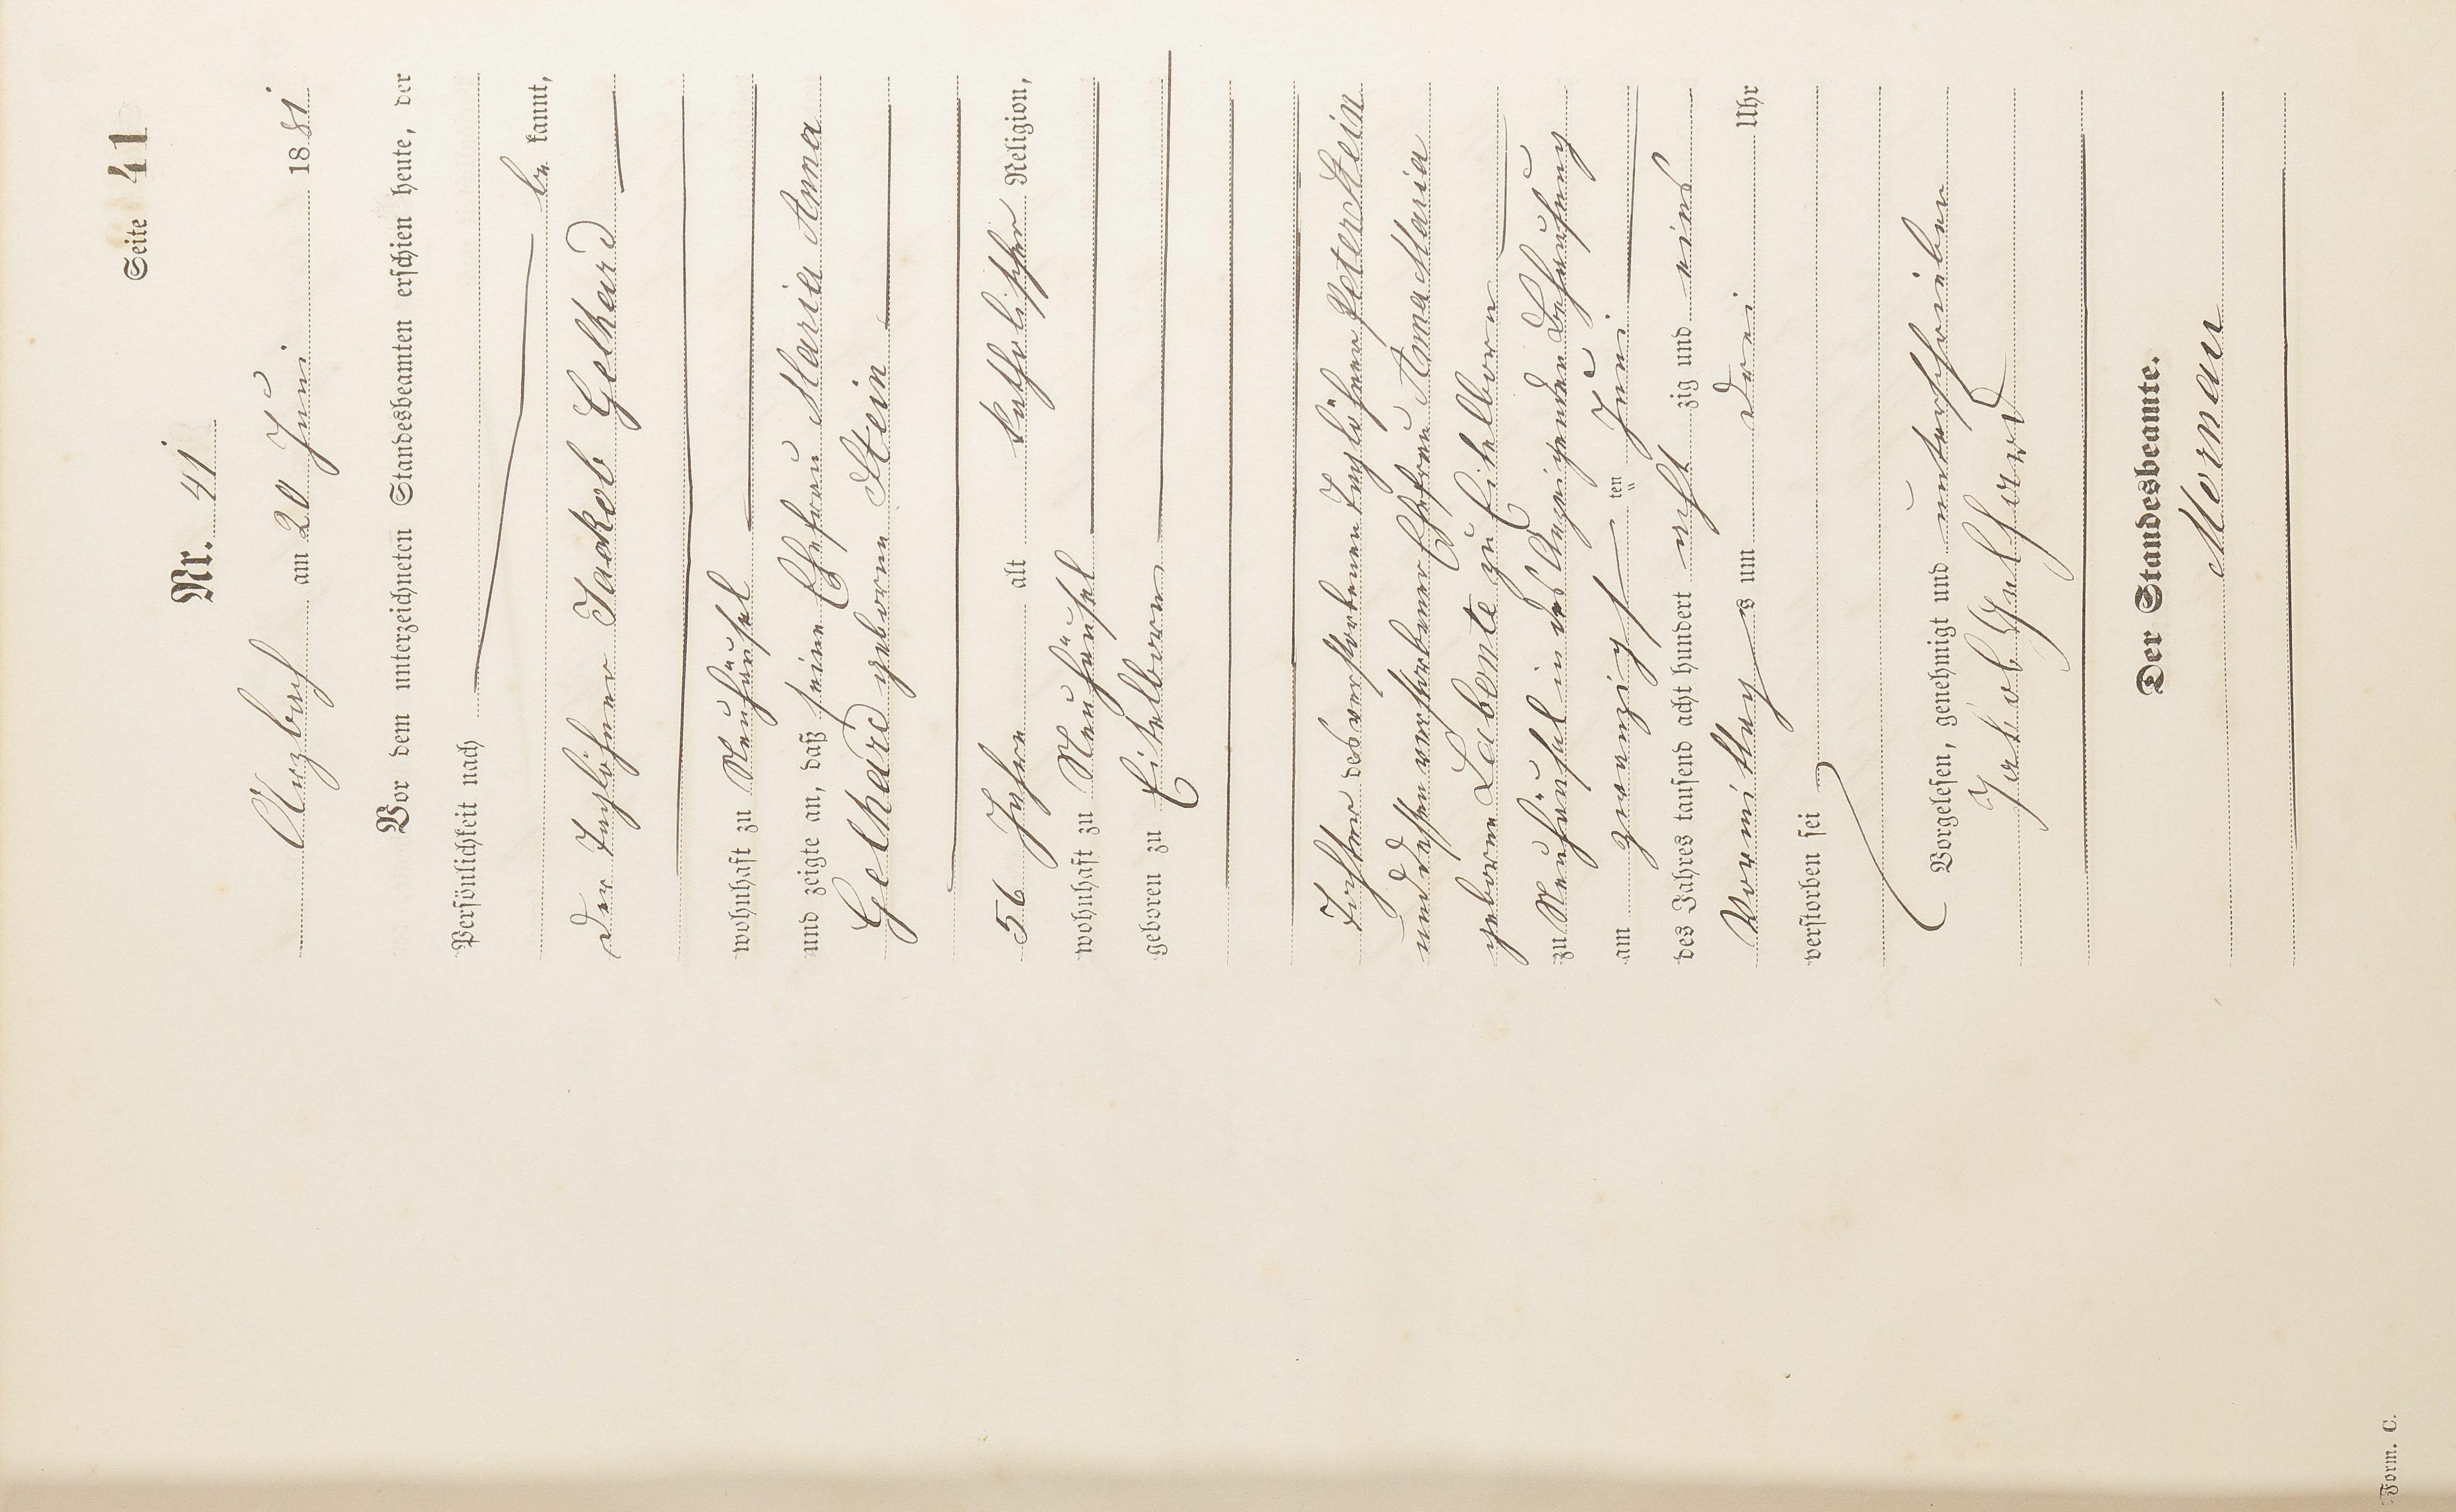 Seite 41
Nr. 41
Arzbach am 20 Juni 1881
Vor dem unterzeichneten Standesbeamten erschien heute, der
Persönlichkeit nach
be kannt,
der Taglöhner Jackob Gelhard
wohnhaft zu Neuhäusel
und zeigte an, daß seine Ehefrau Maria Anna
Gelhard geborne Stein
56 Jahre alt katholischer Religion,
wohnhaft zu Neuhäusel
geboren zu Eitelborn
Tochter des verstorbenen Taglöhner Peter Stein
und dessen verstorbener Ehefrau Anna Maria
geborne Labonte zu Eitelborn
zu Neuhäusel in des Anzeigenden Behausung
am zwanzigs ten Juni
des Jahres tausend acht hundert acht zig und eins
Vormittag s um drei Uhr
verstorben sei
Vorgelesen, genehmigt und unterschrieben
Jakob Gelhard
Der Standesbeamte.
Mornau
Form. C.